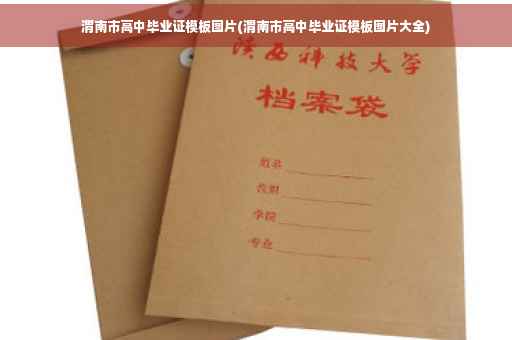 渭南市高中毕业证模板图片(渭南市高中毕业证模板图片大全)
陕西科技大学
档案袋
姓名
学院
专业